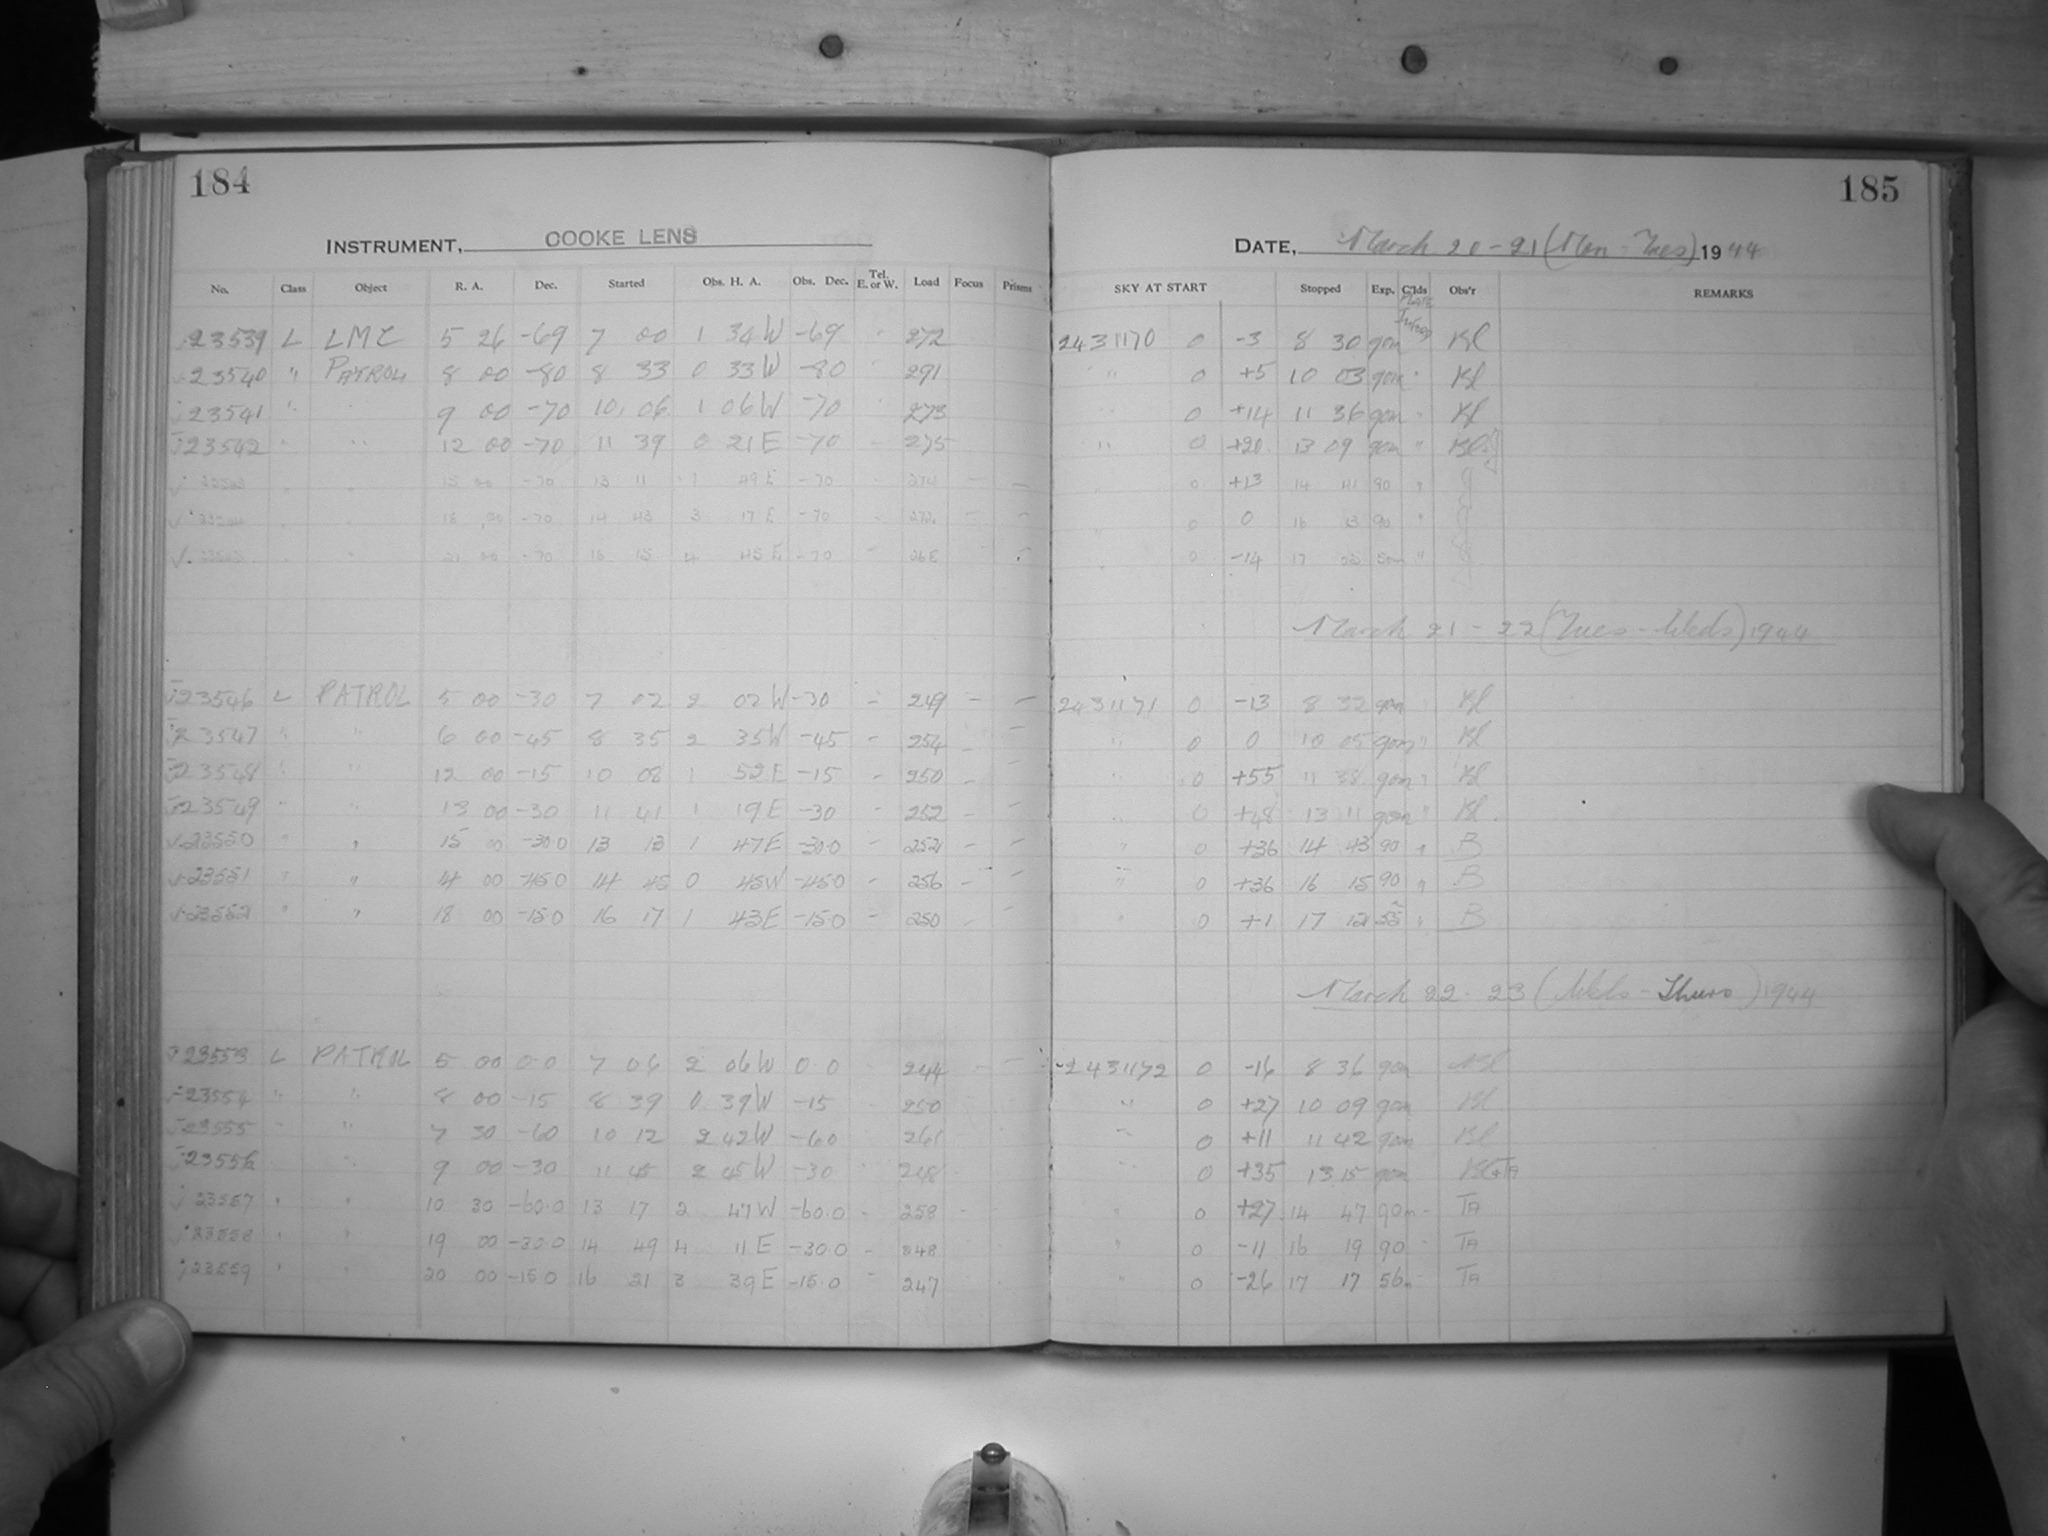 184
INSTRUMENT, COOKE LENS
No. Class Object R. A. Dec. Started Obs. H. A. Obs. Dec. Tel. E. or W. Load Focus Prisms
23539 L LMC 5 26 -69 7 00 1 34 W -69 272
23540 " PATROL 8 00 -80 8 33 0 33 W -80 291
23541 " " 9 00 -70 10 06 1 06 W -70 273
23542 " " 12 00 -70 11 39 0 21 E -70 275
15 00 -70 13 11 1 49 E -70 274
18 00 -70 14 43 3 17 E -70 272
21 00 -70 16 15 4 45 E -70 268
23546 L PATROL 5 00 -30 7 02 2 02 W -30 - 249 - -
23547 " " 6 00 -45 8 35 2 35 W -45 - 254 - -
23548 " " 12 00 -15 10 08 1 52 E -15 - 250 - -
23549 " " 13 00 -30 11 41 1 19 E -30 - 252 - -
23550 " " 15 00 -30.0 13 13 1 47 E -30.0 - 252 - -
23551 " " 14 00 -45.0 14 45 0 45 W -45.0 - 256 - -
23552 " " 18 00 -15.0 16 17 1 43 E -15.0 - 250 - -
23553 L PATROL 5 00 0.0 7 06 2 06 W 0.0 244
23554 " " 8 00 -15 8 39 0 39 W -15 250
23555 " " 7 30 -60 10 12 2 42 W -60 261
23556 " 9 00 -30 11 45 2 45 W -30 248
23557 " " 10 30 -60.0 13 17 2 47 W -60.0 - 258
23558 " " 19 00 -30.0 14 49 4 11 E -30.0 - 248
23559 " " 20 00 -15.0 16 21 3 39 E -15.0 - 247
185
DATE, March 20-21 (Mon - Tues) 1944
SKY AT START Stopped Exp. C'lds Obs'r REMARKS
2431170 0 -3 8 30 90m Bl
" 0 +5 10 03 90m " Bl
" 0 +14 11 36 90m " Bl
" 0 +20 13 09 90m " Bl
" 0 +13 14 41 90 "
" 0 0 16 13 90 "
" 0 -14 17 05 50m "
March 21-22 (Tues-Weds) 1944
2431171 0 -13 8 32 90m Bl
" 0 0 10 05 90m " Bl
" 0 +55 11 38 90m " Bl
" 0 +48 13 11 90m " Bl
" 0 +36 14 43 90 " B
" 0 +36 16 15 90 " B
" 0 +1 17 12 55 " B
March 22-23 (Weds-Thurs) 1944
2431172 0 -16 8 36 90m Bl
" 0 +27 10 09 90m Bl
" 0 +11 11 42 90m Bl
" 0 +35 13 15 90m Bl+TA
" 0 +27 14 47 90m TA
" 0 -11 16 19 90 TA
" 0 -26 17 17 56m TA